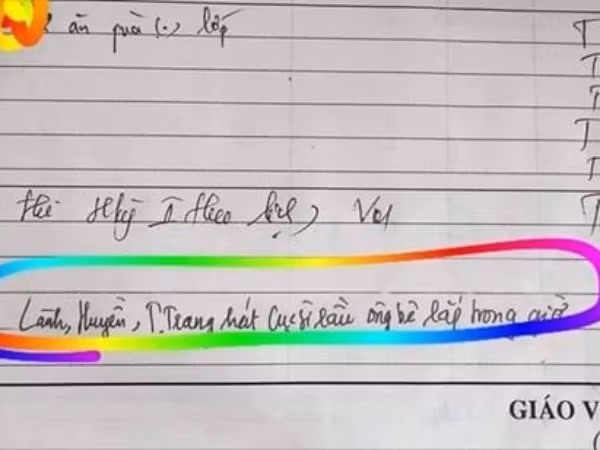 ăn quà (.) lớp
T
T
T
T
T
thi Học kỳ I theo lịch, Vở
T
Lành, Huyền, T.Trang hát Cục sì lầu ông bê lắp trong giờ
GIÁO V
(